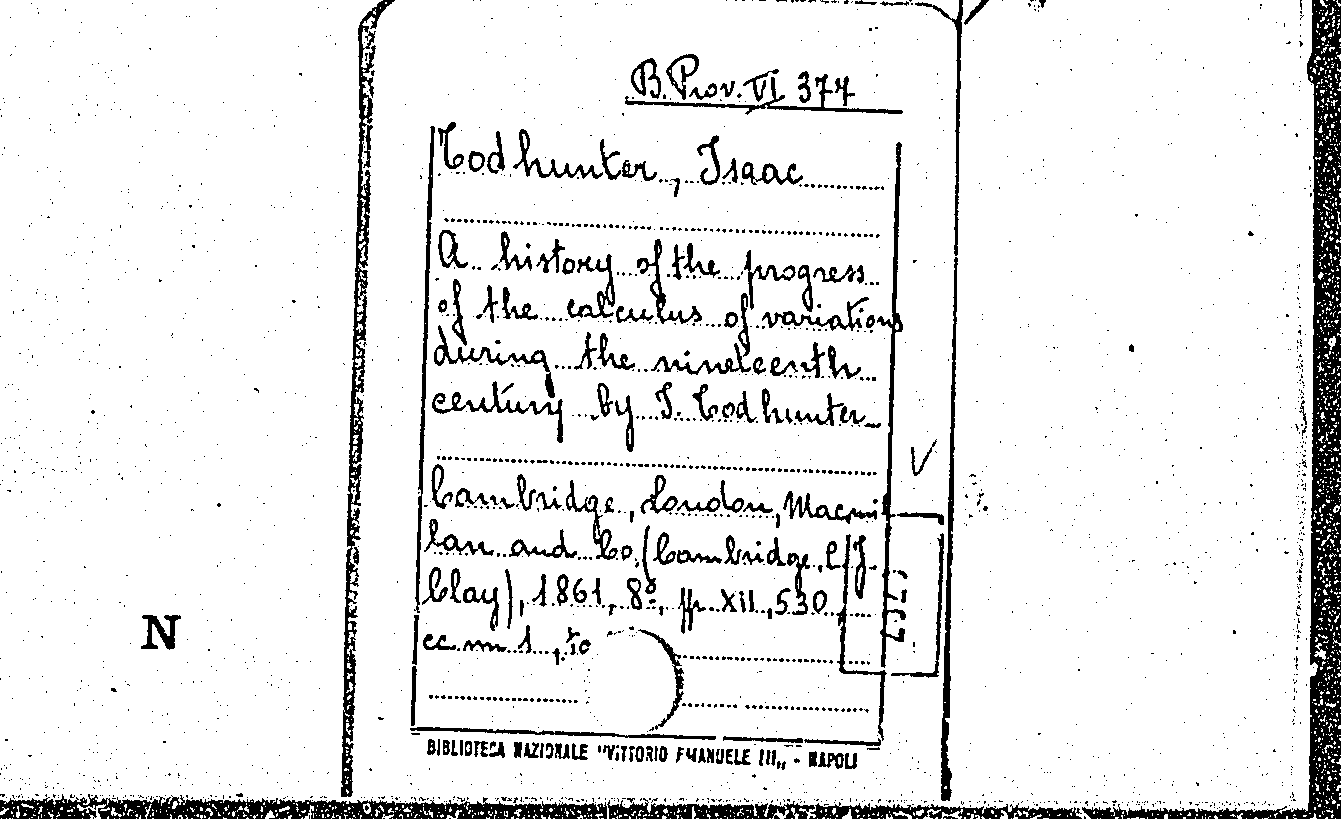 B. Prov. VI 377
Todhunter, Isaac
A history of the progress
of the calculus of variations
during the nineteenth
century by I. Todhunter
Cambridge, London, Macmil
lan and Co. (Cambridge, C/J.
Clay), 1861, 8º, pp. XII, 530,
cc. nn 1, to
N
BIBLIOTECA NAZIONALE "VITTORIO EMANUELE III„ - NAPOLI